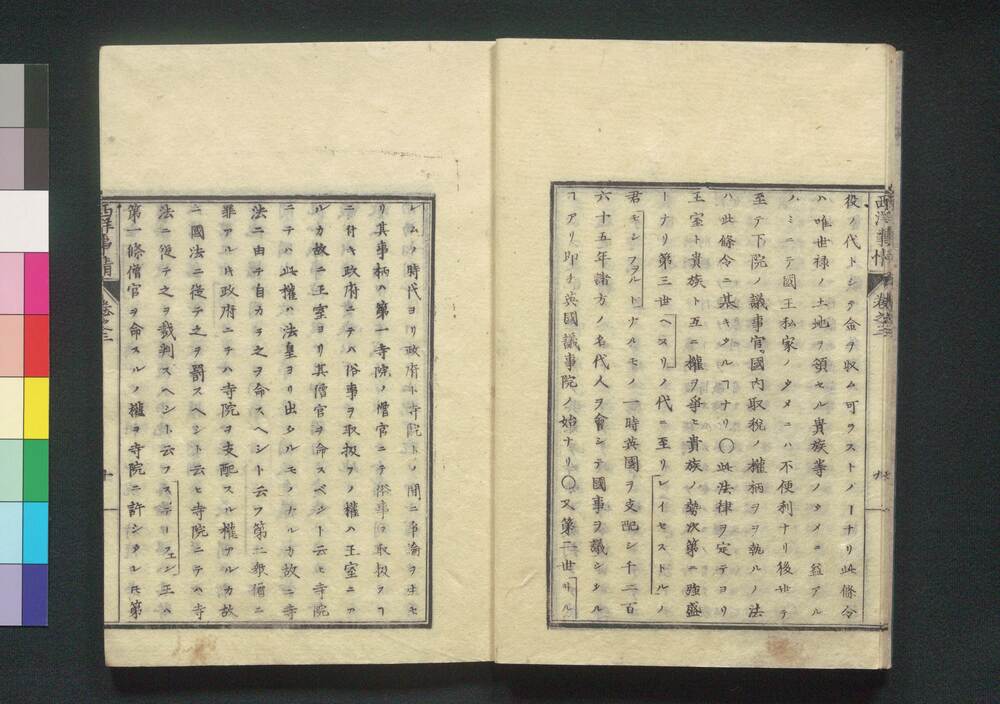 西洋事情 卷之三 九
役ノ代トシテ金ヲ収ム可ラストノ ーナリ此條令
ハ唯世禄ノ土地ヲ領セル貴族等ノタメニ益アル
ノミニテ國王私家ノタメニハ不便利ナリ後世ニ
至テ下院ノ議事官國内取税ノ權柄ヲヲ執ルノ法
ハ此條令ニ基キタルヿナリ〇此法律ヲ定テヨリ
王室ト貴族ト互ニ權ヲ爭ヒ貴族ノ勢次第ニ強盛
ーナリ第三世ヘヌリノ代ニ至リレイセストルノ
君モシフヲルトナルモノ一時英國ヲ支配シ千二百
六十五年諸方ノ名代人ヲ會シテ國事ヲ議シタル
ヿアリ即チ英國議事院ノ始ナリ〇又第二世ヘル
レムノ時代ヨリ政府ト寺院トノ間ニ爭論ヲ生セ
リ其事柄ハ第一寺院ノ僧官ニテ俗事ヲ取扱フヿ
ニ付キ政府ニテハ俗事ヲ取扱フノ權ハ王室ニア
ルカ故ニ王室ヨリ其僧官ヲ命スベシト云ヒ寺院
ニテハ此權ハ法皇ヨリ出タルモノナルカ故ニ寺
法ニ由テ自カラ之ヲ命スヘシト云フ第二教僧ニ
罪アルトキ政府ニテハ寺院ヲ支配スル權アルカ故
ニ國法ニ從テ之ヲ罰スヘシト云ヒ寺院ニテハ寺
法ニ從テ之ヲ裁判スヘシト云フステーフェン王ハ
第一條僧官ヲ命スルノ權ヲ寺院ニ許シタレ𪜈第
西洋事情 卷之三 十